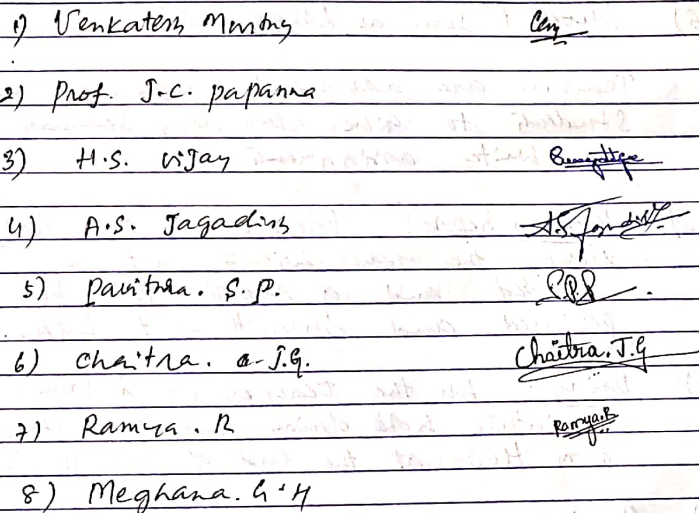 1) Venkatesh Murthy
2) Prof. J.C. papanna
3) H.S. vijay
4) A.S. Jagadish A.S. Jagadish
5) Pavithra. S.P. S.P.S
6) Chaitra. J.G. Chaitra. J.G
7) Ramya. R Ramya.R
8) Meghana. G.H